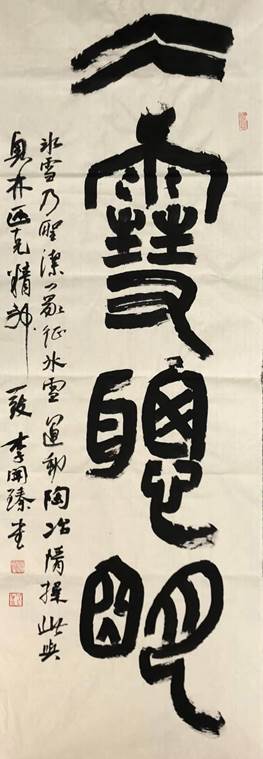 仌雪聰明
冰雪乃聖潔之象征冰雪運動陶冶情操此與
奧林匹克精神一致 李臻書